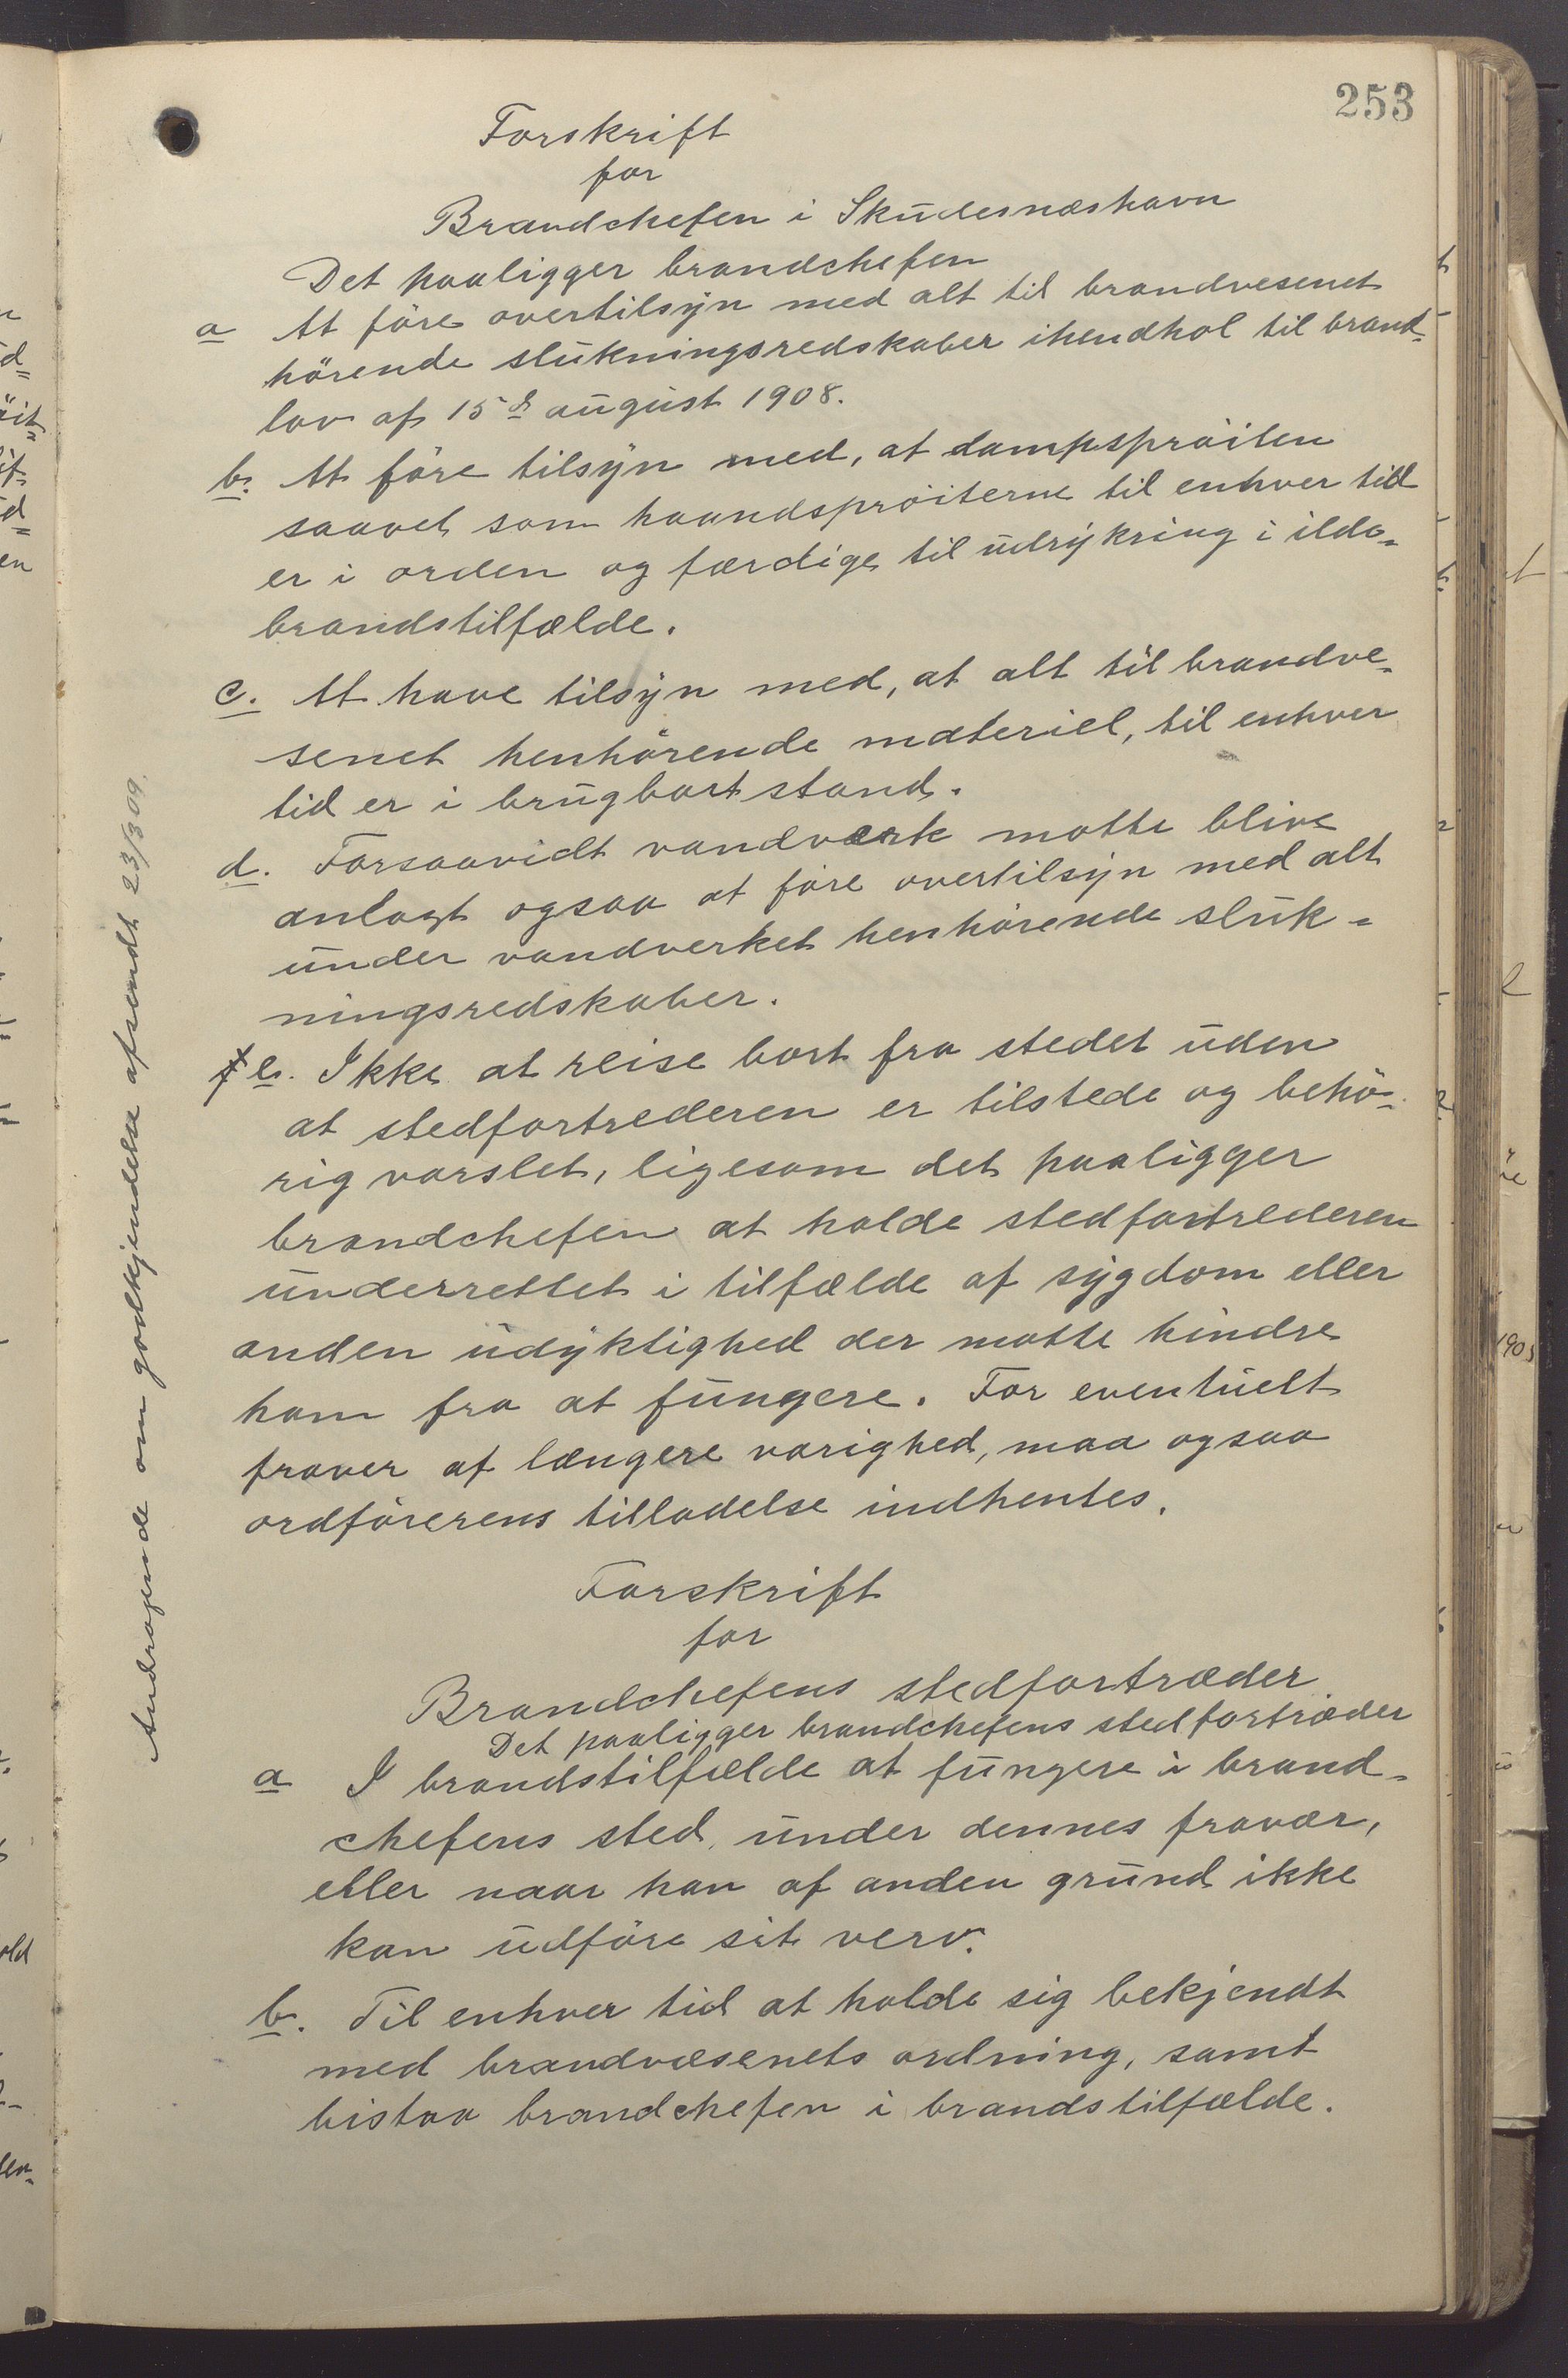 253
Forskrift
for
Brandchefen i Skudesnæshavn
Det paaligger brandchefen
a At före overtilsyn med alt til brandvesenet
hörende slukningsredskaber ihendhol til brand-
lov af 15de august 1908.
b. At före tilsyn med, at dampspröiten
saavel som haandspröiterne til enhver tid
er i orden og færdige til udrykning i ilds-
brandstilfælde.
c. At have tilsyn med, at alt til brandve-
senet henhörende materiel, til enhver
tid er i brugbart stand.
d. Forsaavidt vandværk matte blive
anlagt ogsaa at före overtilsyn med alt
under vandverket henhörende sluk-
ningsredskaber.
e. Ikke at reise bort fra stedet uden
at stedfortrederen er tilstede og behö-
rig varslet, ligesom det paaligger
brandchefen at holde stedfortrederen
underrettet i tilfælde af sygdom eller
anden udyktighed der matte hindre
ham fra at fungere. For eventuelt
fraver af længere varighed, maa ogsaa
ordförerens tilladelse indhentes.
Forskrift
for
Brandchefens stedfortræder
Det paaligger brandchefens stedfortræder
a I brandstilfælde at fungere i brand-
chefens sted, under dennes fravær,
eller naar han af anden grund ikke
kan udföre sit verv.
b. Til enhver tid at holde sig bekjendt
med brandvæsenets ordning, samt
bistaa brandchefen i brandstilfælde.
Andragende om godkjendelse afsendt 23/3 09.